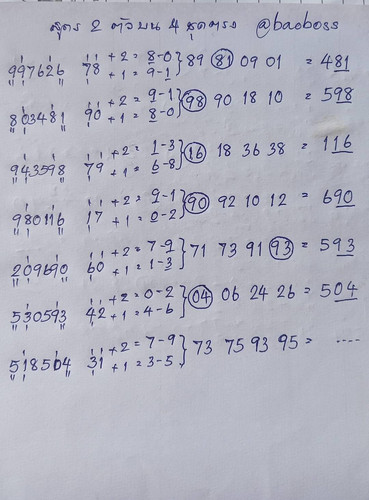 สูตร 2 ตัวบน 4 ชุดตรง @baoboss
997626 78 +2 = 8-0 } 89 81 09 01 = 481
+1 = 9-1
803481 90 +2 = 9-1 } 98 90 18 10 = 598
+1 = 8-0
943598 79 +2 = 1-3 } 16 18 36 38 = 116
+1 = 6-8
980116 17 +2 = 9-1 } 90 92 10 12 = 690
+1 = 0-2
209690 60 +2 = 7-9 } 71 73 91 93 = 593
+1 = 1-3
530593 42 +2 = 0-2 } 04 06 24 26 = 504
+1 = 4-6
518504 31 +2 = 7-9 } 73 75 93 95 = ....
+1 = 3-5